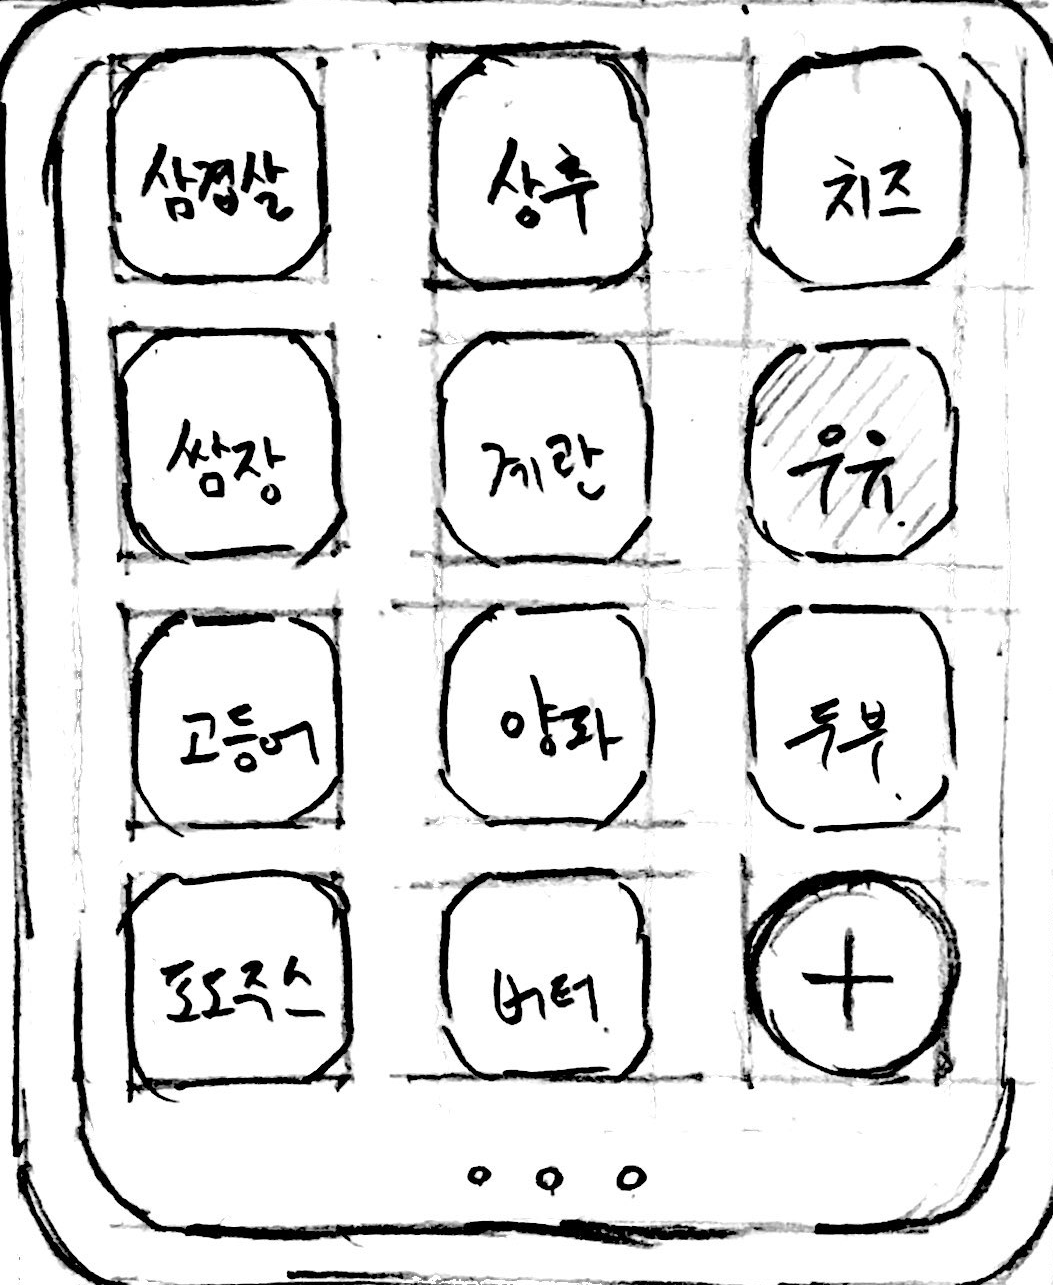 삼겹살 상추 치즈
쌈장 계란 우유
고등어 양파 두부
포도주스 버터 +